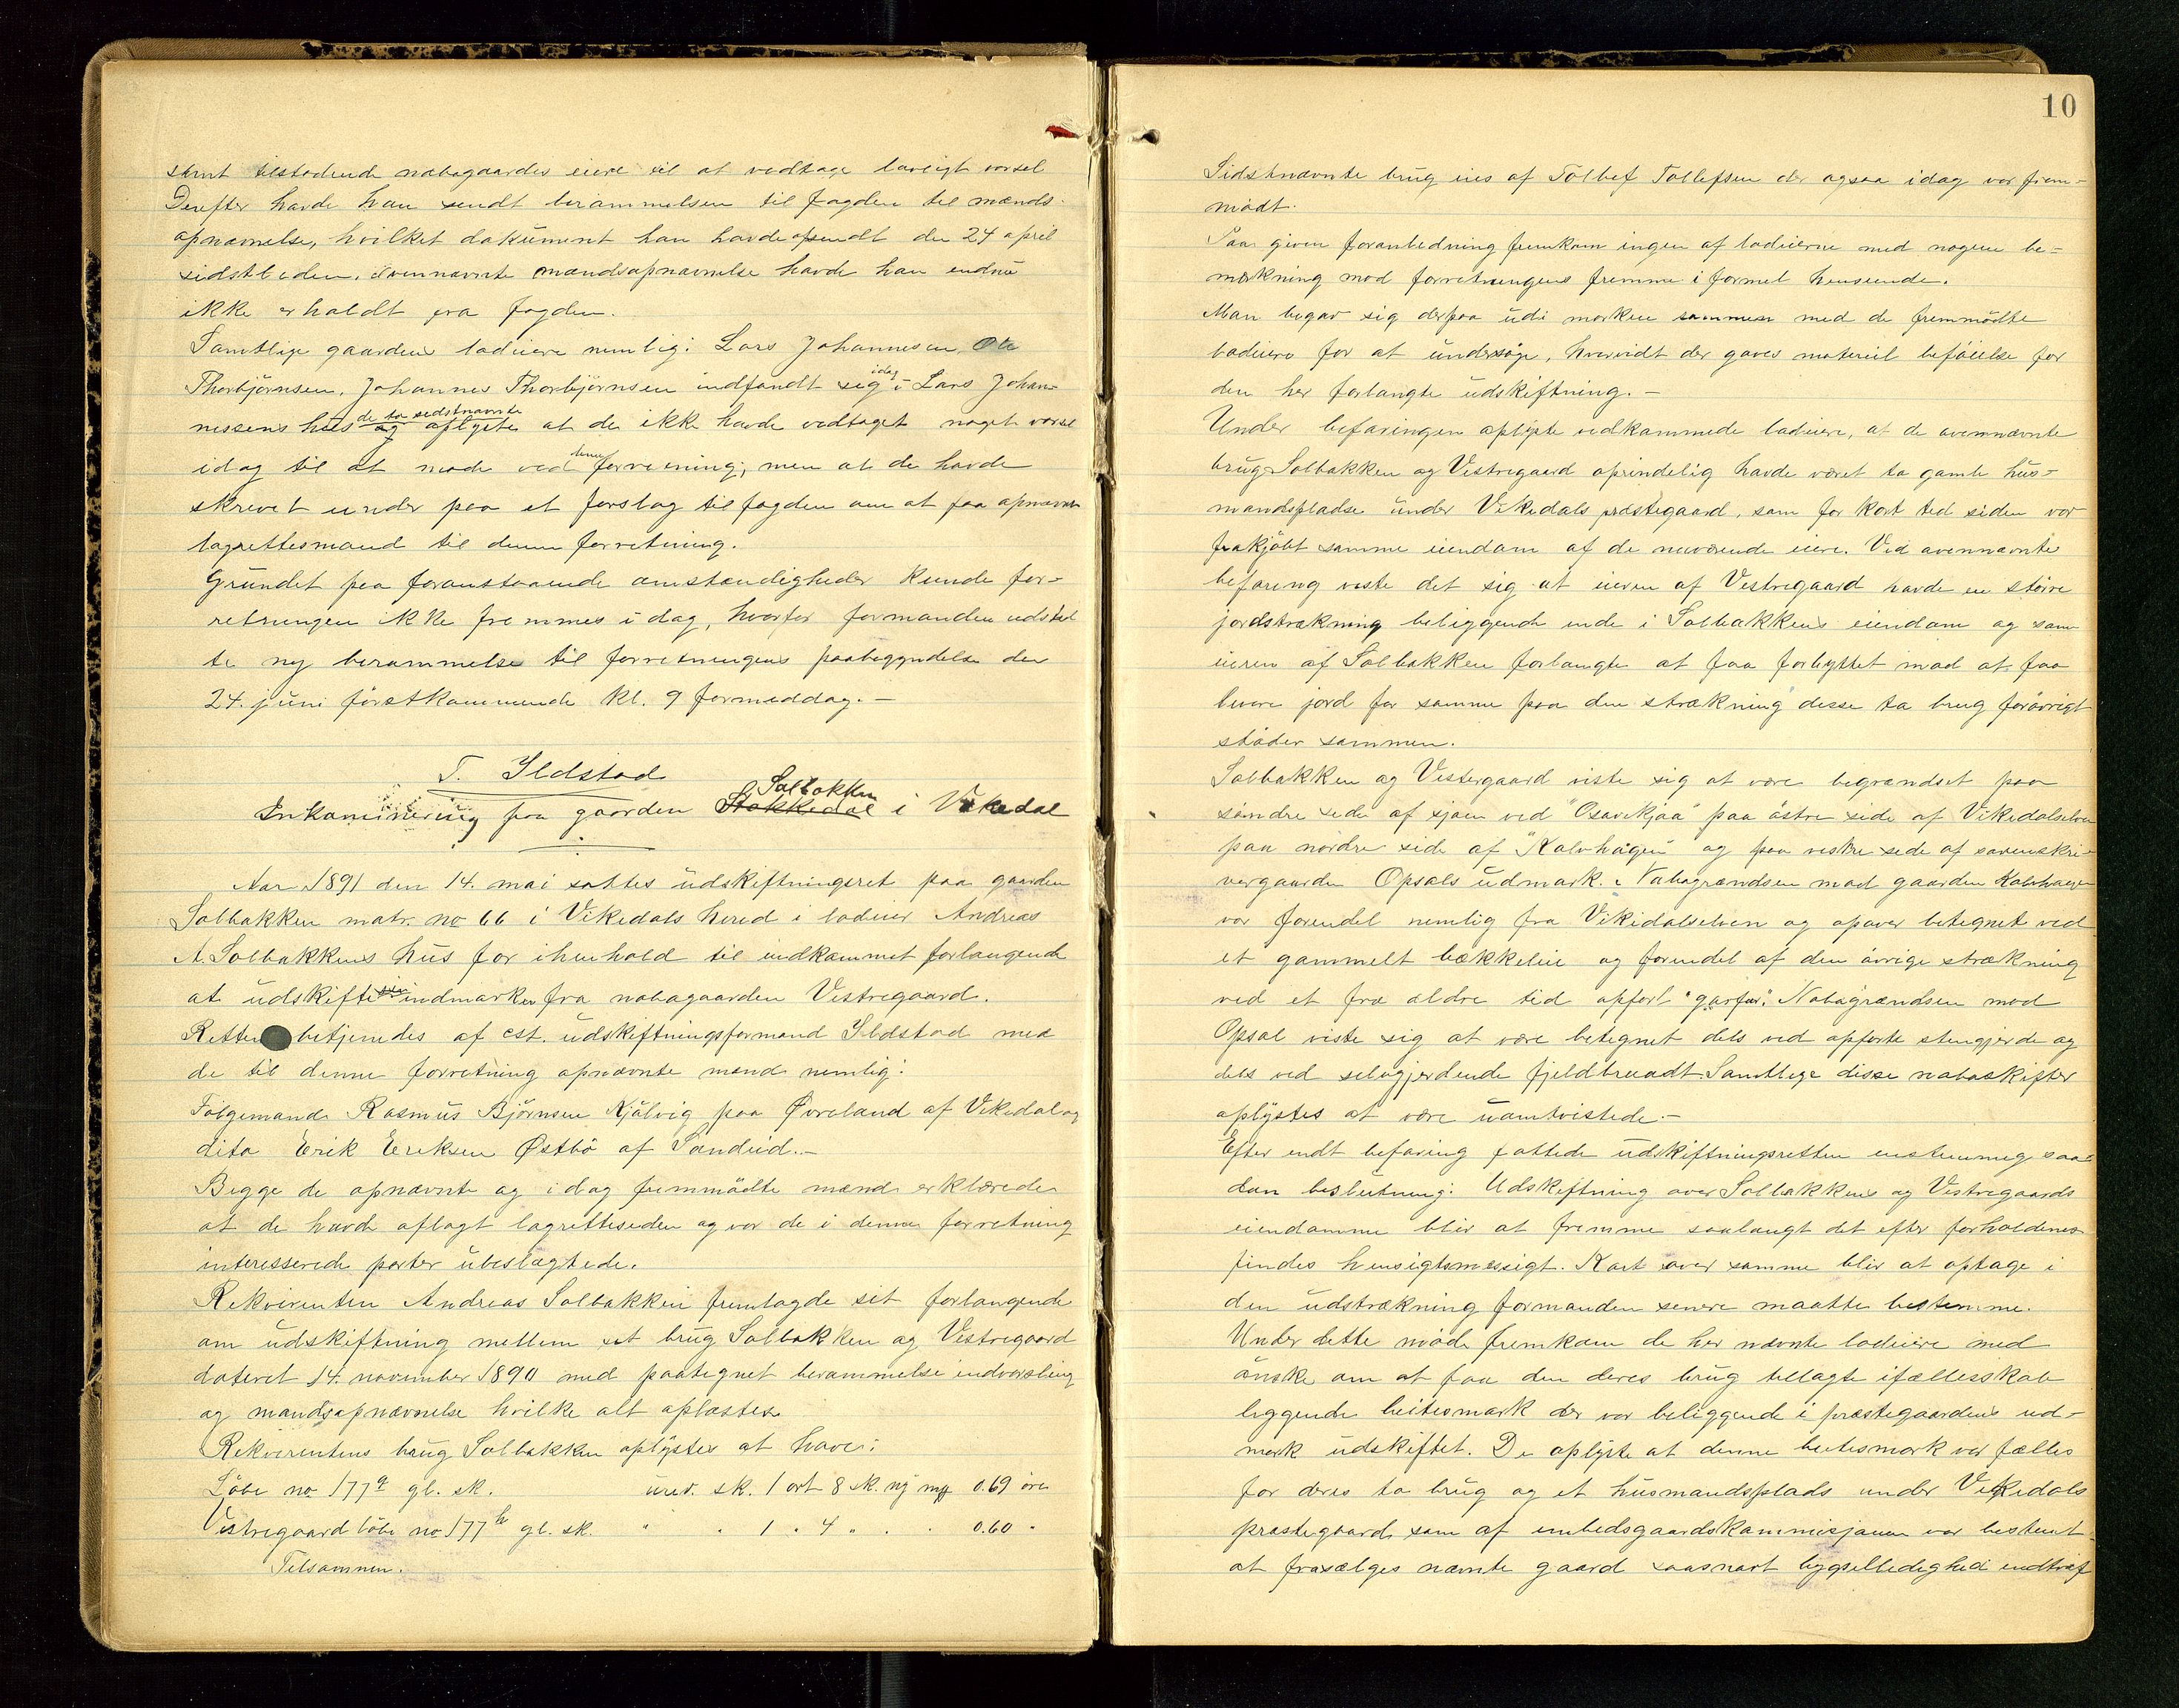 samt tilstødende nabogaardes eiere til at vedtage lovligt varsel
Derefter havde han sendt berammelsen til fogden til mænds-
opnævnelse, hvilket dokument han havde afsendt den 24 april
sidstleden, ovennævnte mændsopnævnelse havde han endnu
ikke erholdt fra fogden.
Samtlige gaardens lodeiere nemlig: Lars Johannesen, Ole
Thorbjörnsen, Johannes Thorbjörnsen indfandt sig idag i Lars Johan-
nessens hus og de to sidstnævnte oplyste at de ikke havde vedtaget noget varsel
idag til at møde ved denne forretning, men at de havde
skrevet under paa et forslag til fogden om at faa opnævnt
lagrettesmænd til denne forretning.
Grundet paa foranstaaende omstændigheder kunde for-
retningen ikke fremmes i dag, hvorfor formanden udstæd
te ny berammelse til forretningens paabegyndelse den
24. juni førstkommende kl. 9 formeddag. —
T. Ildstad
Inkaminering paa gaarden Stokkedal Solbakken i Vikedal
Aar 1891 den 14. mai sattes udskiftningsret paa gaarden
Solbakken matr. no 66 i Vikedals hered i lodeier Andreas
A. Solbakkens hus for ihenhold til indkommet forlangende
at udskifte sin indmarken fra nabogaarden Vestregaard.
Retten betjendes af cst. udskiftningsformand Ildstad med
de til denne forretning opnævnte mænd nemlig:
Følgemand Rasmus Björnsen Kjölvig paa Øvreland af Vikedal og
dito Erik Eriksen Østbö af Sandeid. —
Begge de opnævnte og idag fremmödte mænd erklærede
at de havde aflagt lagretteseden og var de i denne forretning
interesserede parter ubeslægtede.
Rekvirenten Andreas Solbakken fremlagde sit forlangende
om udskiftning mellem sit brug Solbakken og Vestregaard
dateret 14. november 1890 med paategnet berammelse indvarsling
og mandsopnævnelse hvilke alt oplæstes.
Rekvirentens brug Solbakken oplystes at have:
Löbe no 177a gl. sk. urev. sk. 1 ort 8 sk. ny mk 0.69 öre
Vestregaard löbe no 177b gl. sk. " " 1 " 4 " " " 0.60 "
Tilsammen.
10
Sidstnævnte brug eies af Tollef Tollefsen der ogsaa idag var frem-
mødt.
Paa given foranledning fremkom ingen af lodeierne med nogen be-
mærkning mod forretningens fremme i formel henseende.
Man begav sig derpaa udi marken sammen med de fremmödte
lodeiere for at undersöge, hvorvidt der gaves materiel beföielse for
den her forlangte udskiftning. —
Under befaringen oplyste vedkommende lodeiere, at de ovennævnte
brug Solbakken og Vestregaard oprindelig havde været to gamle hus-
mandspladse under Vikedals præstegaard, som for kort tid siden var
frakjöbt samme eiendom af de nuværende eiere. Ved ovennævnte
befaring viste det sig at eieren af Vestregaard havde en större
jordstrækning beliggende inde i Solbakkens eiendom og som
eieren af Solbakken forlangte at faa forbyttet mod at faa
levere jord for samme paa den strækning disse to brug forövrigt
stöder sammen.
Solbakken og Vestergaard viste sig at være begrændset paa
söndre side af sjöen ved "Osavikjaa" paa östre side af Vikedalselven
paa nordre side af "Kalvhagen" og paa vestre side af sorenskri-
vergaarden Opsals udmark. Nabogrændsen mod gaarden Kalvhagen
var forendel nemlig fra Vikedalselven og opover betegnet ved
et gammelt bækkeleie og forendel af den övrige strækning
ved et fra ældre tid opfört "garfar". Nabogrændsen mod
Opsal viste sig at være betegnet dels ved opförte stengjerde og
dels ved selvgjerdende fjeldbrundt. Samtlige disse naboskifter
oplystes at være uomtvistede. —
Efter endt befaring fattede udskiftningsretten enstemmig saa-
dan beslutning: Udskiftning over Solbakkens og Vestregaards
eiendomme blir at fremme saalangt det efter forholdenes
findes hensigtsmæssigt. Kart over samme blir at optage i
den udstrækning formanden senere maatte bestemme.
Under dette möde fremkom de her nævnte lodeiere med
önske om at faa den deres brug tillagte ifællesskab
liggende beitesmark der var beliggende i præstegaardens ud-
mark udskiftet. De oplyste at denne beitesmark var fælles
for deres to brug og et husmandsplads under Vikedals
præstegaard som af embedsgaardskommisjonen var bestemt
at frasælges nævnte gaard saasnart bygselledighed indtraf